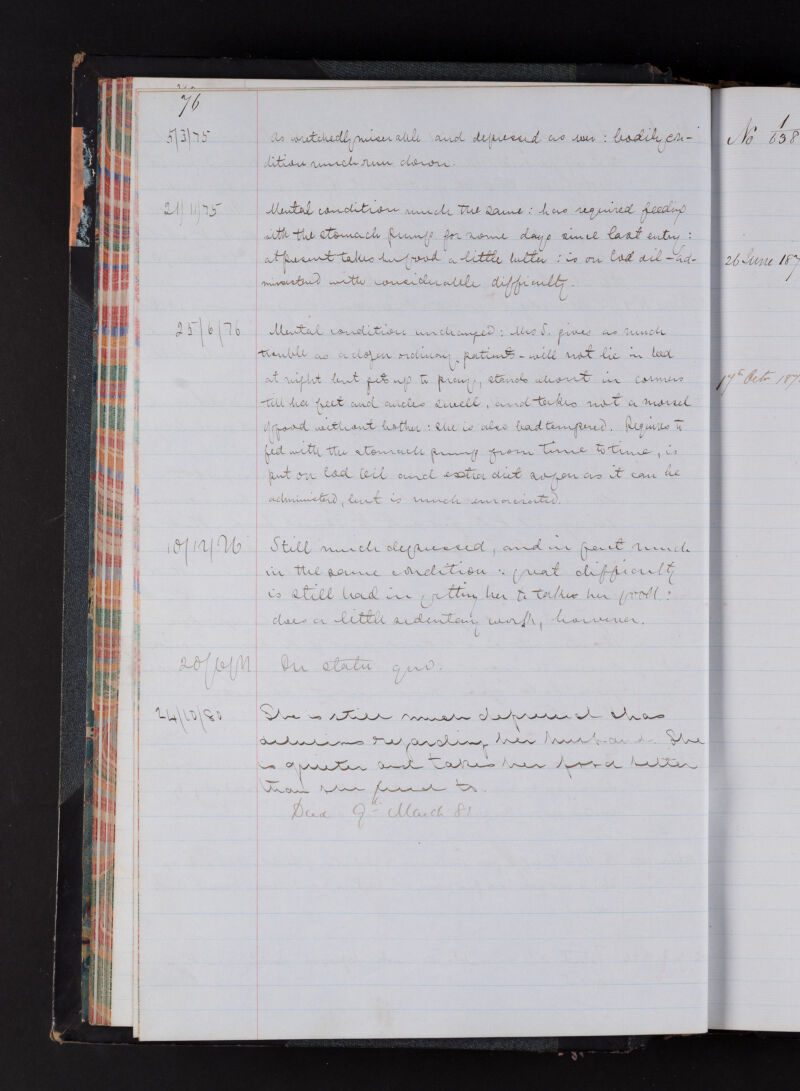 76
5/3/75 As wretchedly miserable and depressed as ever : bodily con-
dition much run down.
21/11/75 Mental condition much the same : has required feeding
with the stomach pump for some days since last entry :
at present takes her food a little better : is on Cod oil – ad-
ministered with considerable difficulty.
25/6/76 Mental condition unchanged : Mrs S. gives as much
trouble as a dozen ordinary patients – will not lie in bed
at night but gets up to pray, stands about in corners
till her feet and ancles swell, and takes not a morsel
of food without bother : she is also bad tempered. Requires to
fed with the stomach pump from time to time, is
put on Cod Oil and extra diet so far as it can be
administered, but is much emaciated.
10/12/76 Still much depressed, and in fact much
in the same condition : great difficulty
is still had in getting her to take her food :
does a little sedentary work, however.
In statu quo.
24/10/80 She is still much depressed & has
delusions regarding her husband. She
is quieter and takes her food better
than she used to.
Died 9th March 81
No 1
638
26 June 187
17th Oct 187